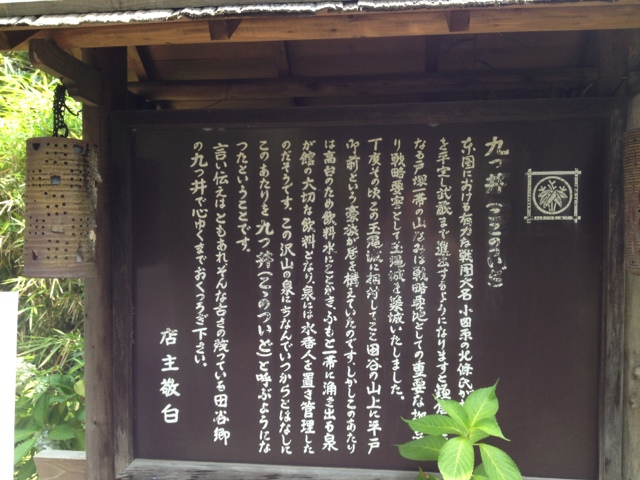 九つ井（ここのついど）
東国における有力な戦国大名 小田原の北條氏が
を平定し武蔵まで進出するようになりますと鎌倉
なる戸塚一帯の山なみは戦略要地としての重要な拠
り戦略要害として玉縄城を築城いたしました。
丁度その頃この玉縄城に相対してここ田谷の山上に平戸
御前という豪族が居を構えていたのですしかしこのあたり
は高台のため飲料水にことかきふもと一帯に涌き出る泉
が館の大切な飲料となり泉には水番人を置き管理した
のだそうです。この沢山の泉にちなんでいつからとはなしに
このあたりを九つ井（ここのついど）と呼ぶようにな
つたということです。
言い伝えはともあれ、そんな古さの残っている田谷郷
の九つ井で心ゆくまでおくつろぎ下さい。
店主敬白